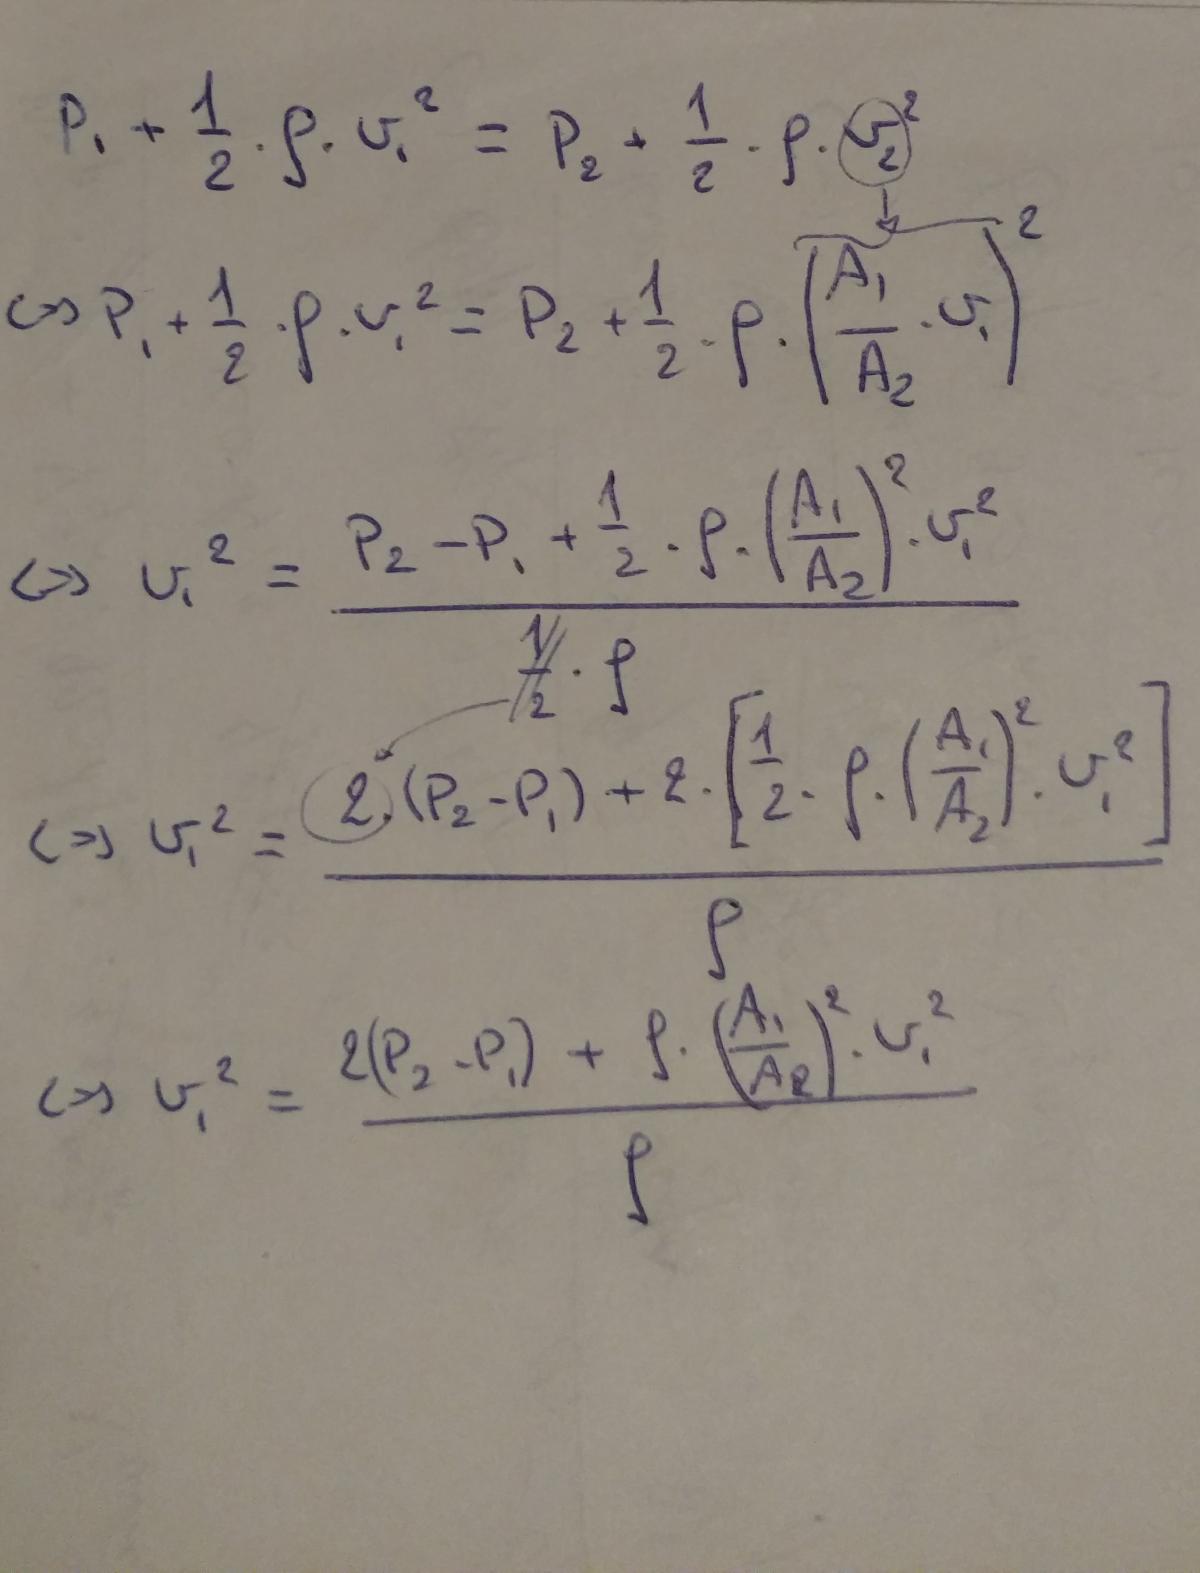 P₁ + 1/2 · ρ · v₁² = P₂ + 1/2 · ρ · v₂²
<=> P₁ + 1/2 · ρ · v₁² = P₂ + 1/2 · ρ · (A₁/A₂ · v₁)²
<=> v₁² = (P₂ - P₁ + 1/2 · ρ · (A₁/A₂)² · v₁²) / (1/2 · ρ)
<=> v₁² = (2 · (P₂ - P₁) + 2 · [1/2 · ρ · (A₁/A₂)² · v₁²]) / ρ
<=> v₁² = (2(P₂ - P₁) + ρ · (A₁/A₂)² · v₁²) / ρ